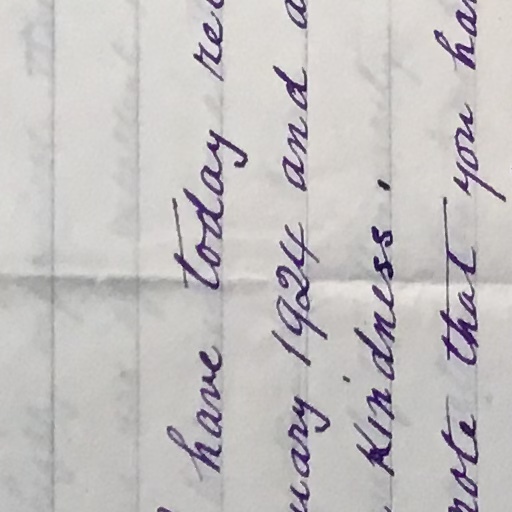 I have today rec
uary 1924 and a
Kindness.
note that you ha